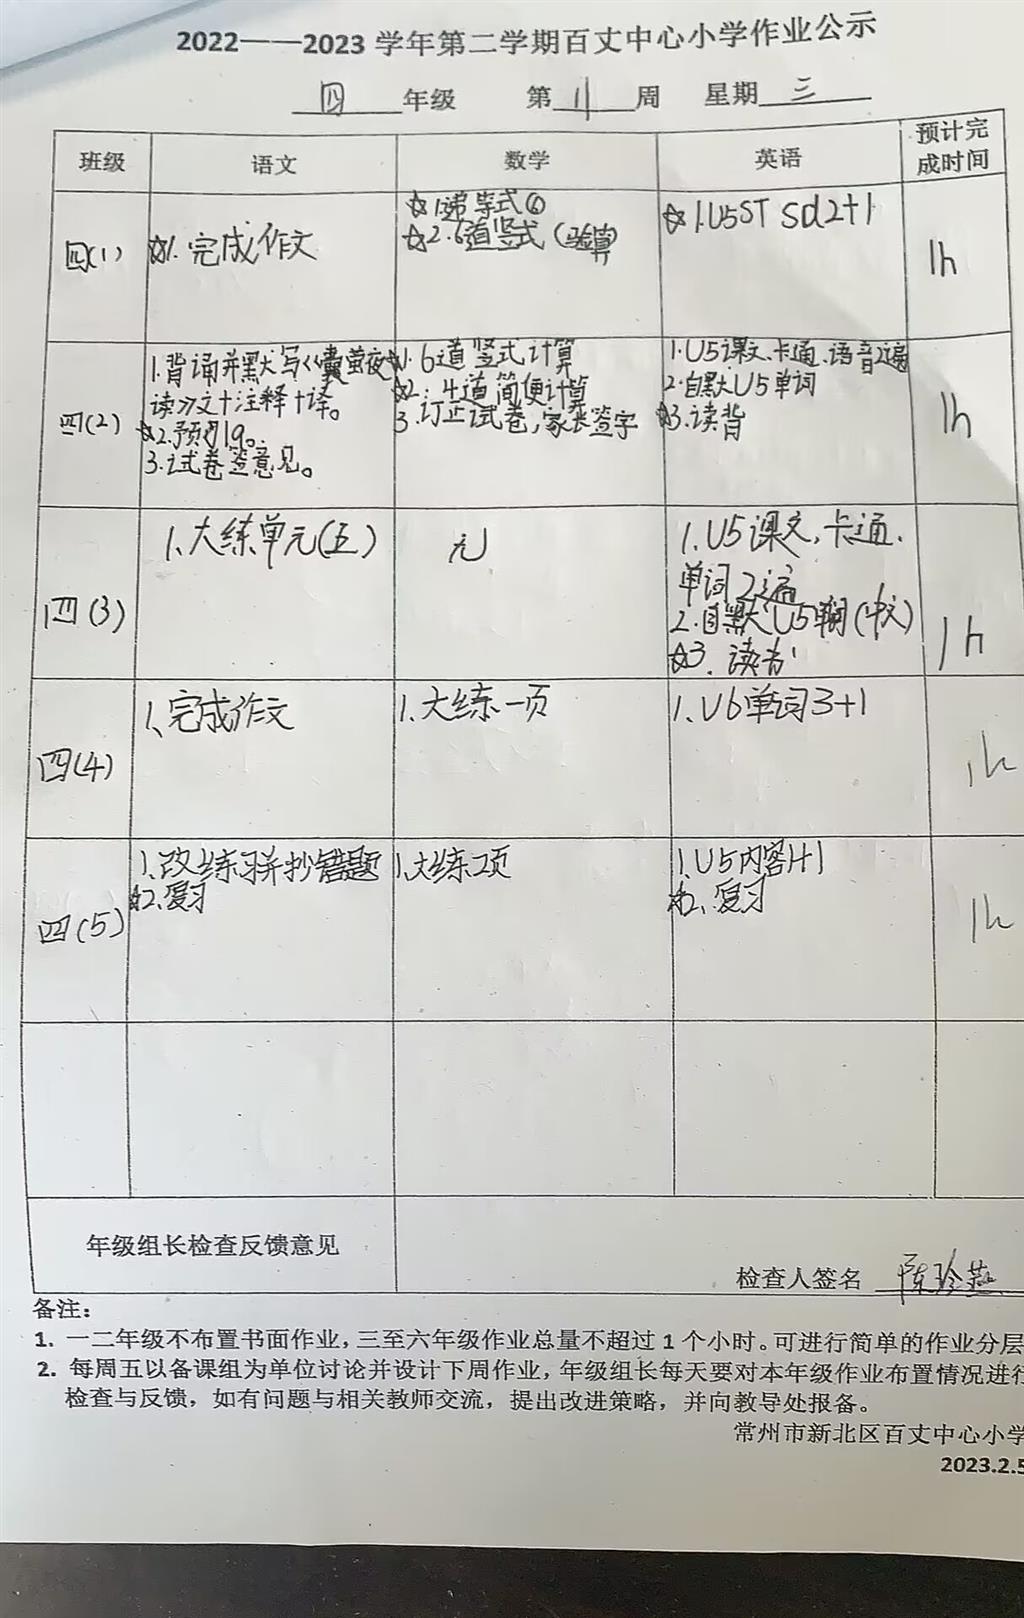 2022——2023 学年第二学期百丈中心小学作业公示
四 年级 第 11 周 星期 三
班级 语文 数学 英语 预计完成时间
四(1)
☆1. 完成作文
☆1递等式⑥
☆2.6道竖式(验算)
☆1.U5ST sd2+1
1h
四(2)
1.背诵并默写《囊萤夜
读》文+注释+译。
☆2.预习19。
3.试卷签意见。
☆1.6道竖式计算
☆2.4道简便计算
3.订正试卷,家长签字
1.U5课文、卡通、语音2遍
2.自默U5单词
☆3.读背
1h
四(3)
1、大练单元(五)
无
1.U5课文,卡通、
单词2遍
2.自默U5单词(中文)
☆3.读书
1h
四(4)
1、完成作文
1.大练一页
1.U6单词3+1
1h
四(5)
1.改练习并抄错题
☆2.复习
1.大练2页
1.U5内容1+1
☆2、复习
1h
年级组长检查反馈意见
检查人签名 陈玲燕
备注:
1. 一二年级不布置书面作业,三至六年级作业总量不超过 1 个小时。可进行简单的作业分层
2. 每周五以备课组为单位讨论并设计下周作业,年级组长每天要对本年级作业布置情况进行
检查与反馈,如有问题与相关教师交流,提出改进策略,并向教导处报备。
常州市新北区百丈中心小学
2023.2.5